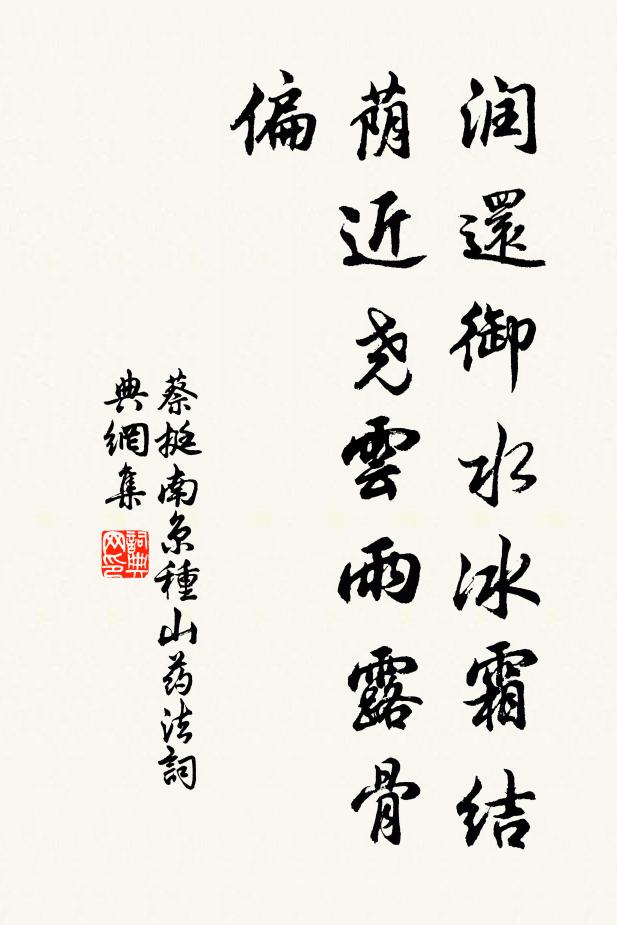 润還御水冰霜结
荫近尧雲雨露骨
偏
蔡挺南京種山药法詞
典網集
詞典
网印